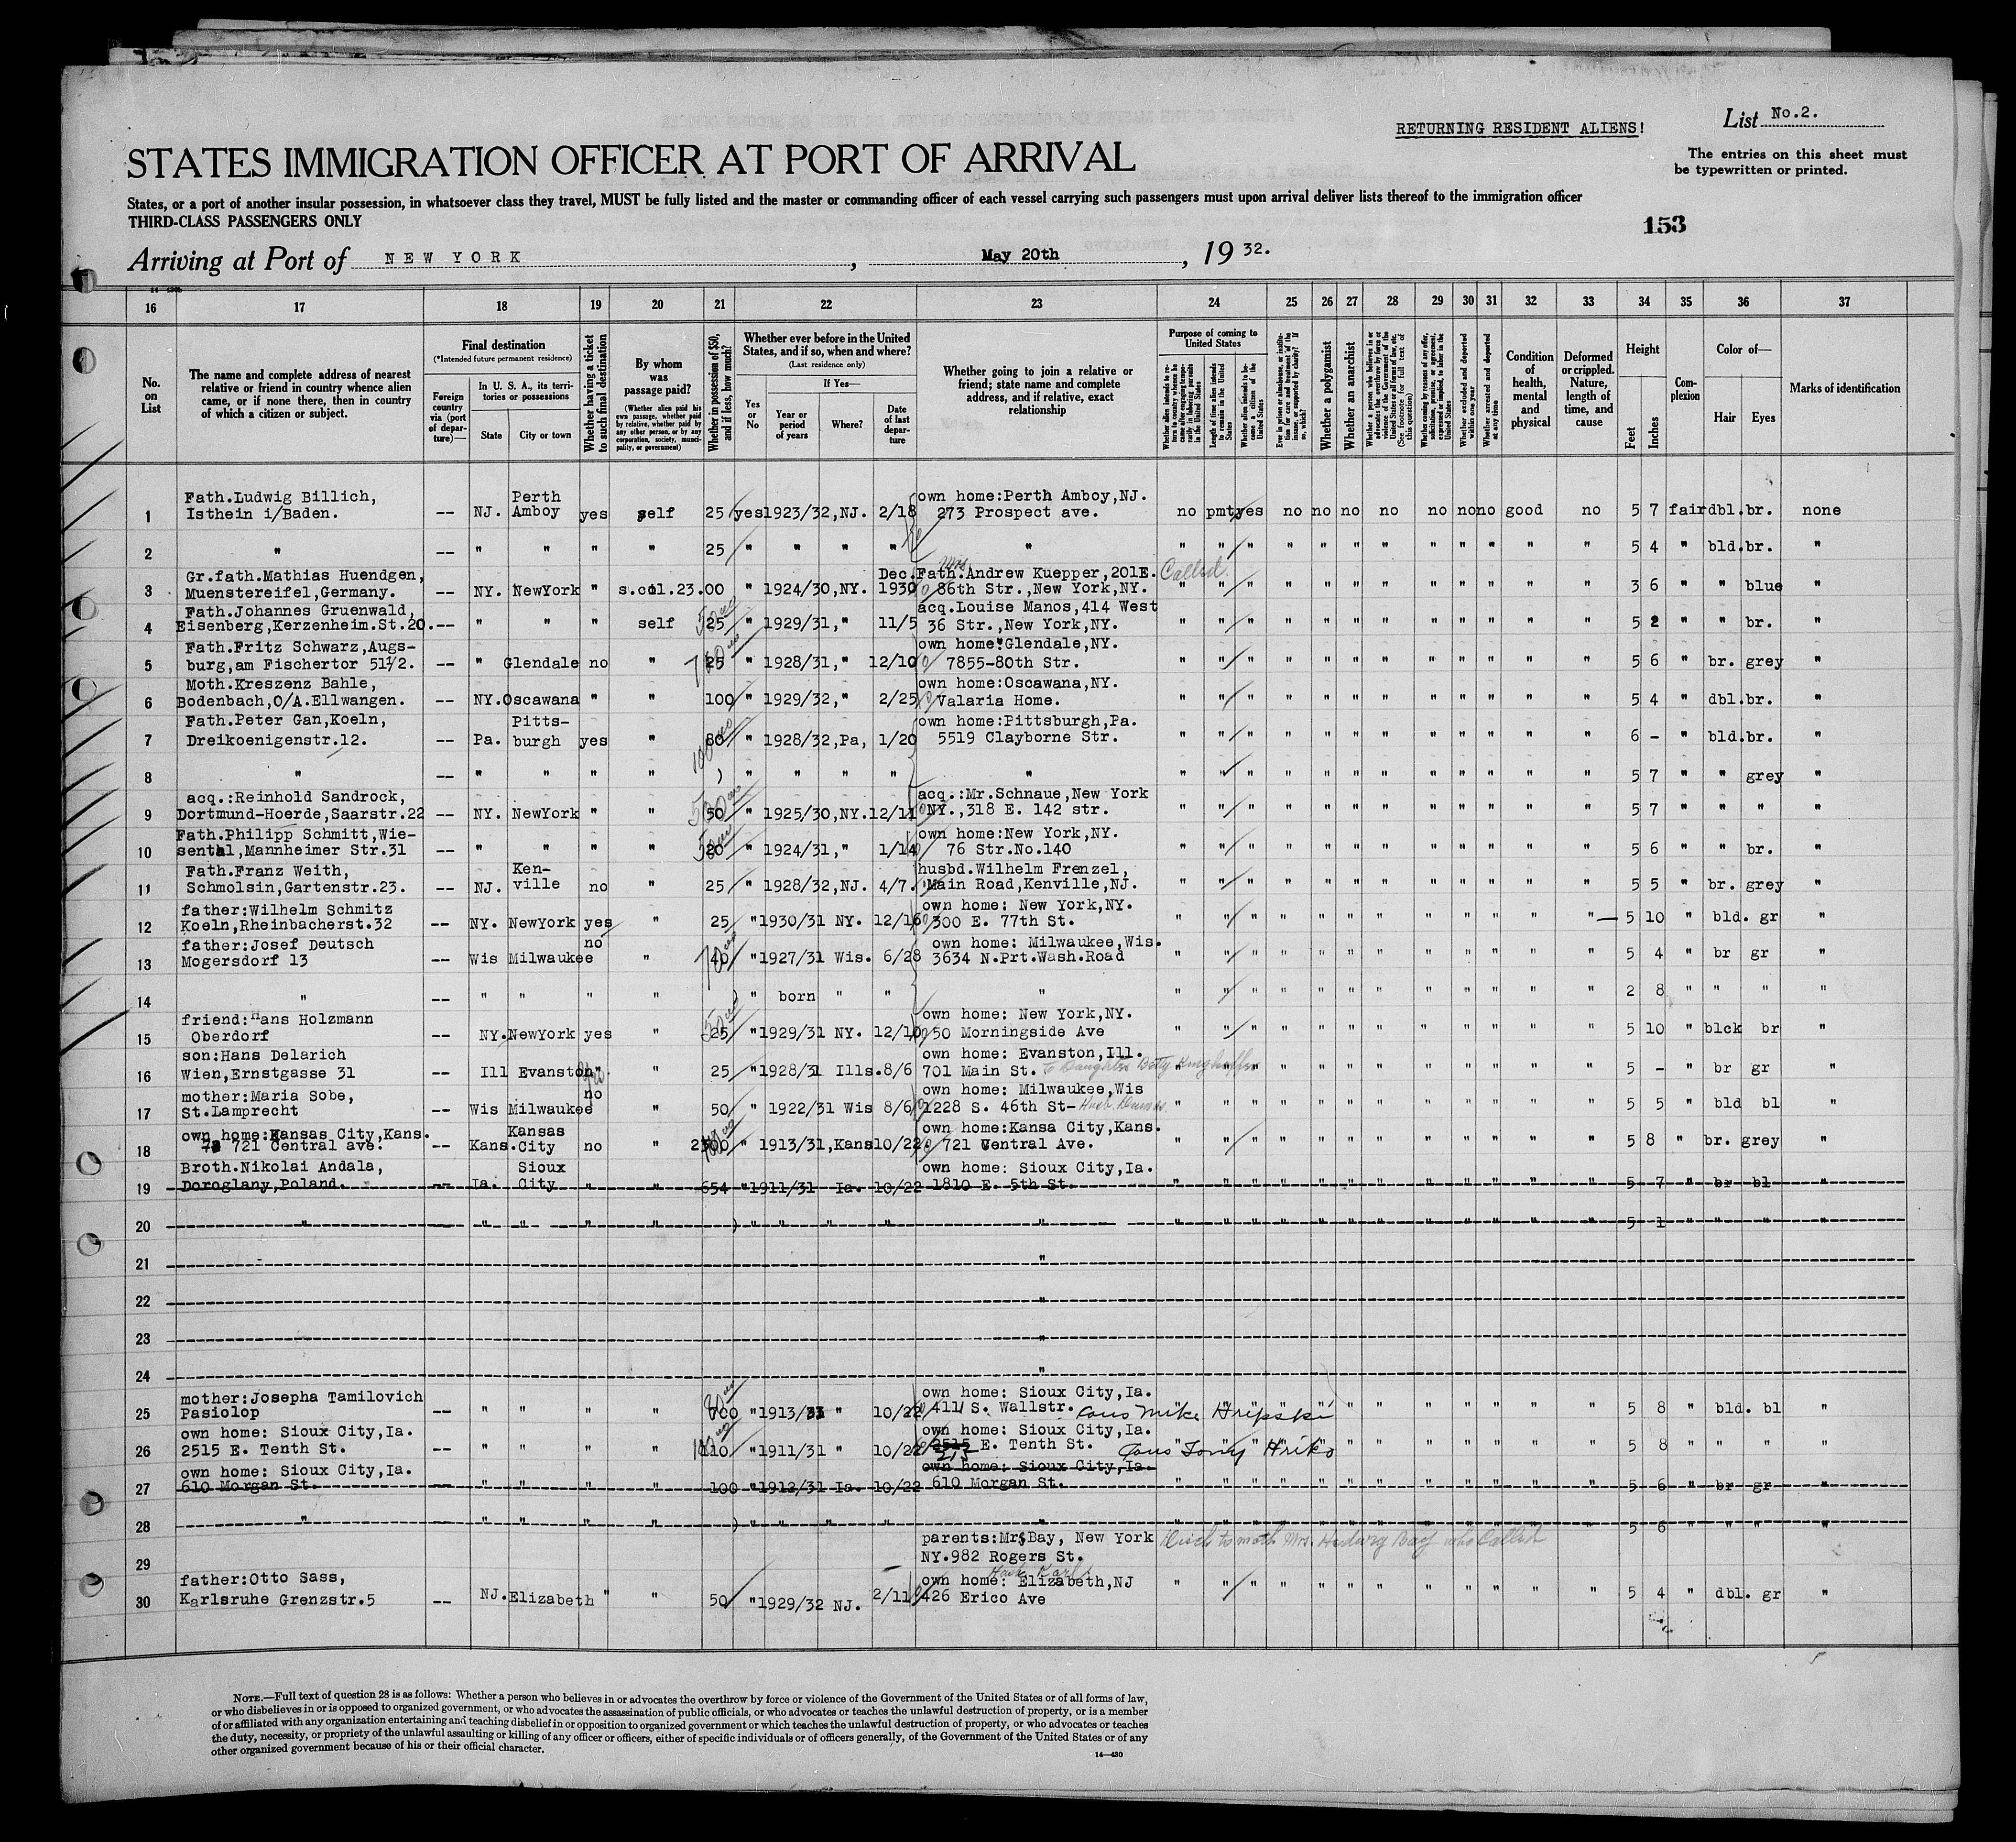 RETURNING RESIDENT ALIENS!
List No.2.
STATES IMMIGRATION OFFICER AT PORT OF ARRIVAL
The entries on this sheet must
be typewritten or printed.
States, or a port of another insular possession, in whatsoever class they travel, MUST be fully listed and the master or commanding officer of each vessel carrying such passengers must upon arrival deliver lists thereof to the immigration officer
THIRD-CLASS PASSENGERS ONLY
153
Arriving at Port of NEW YORK, May 20th, 1932.
16 17 18 19 20 21 22 23 24 25 26 27 28 29 30 31 32 33 34 35 36 37
No. on List
The name and complete address of nearest relative or friend in country whence alien came, or if none there, then in country of which a citizen or subject.
Final destination
(*Intended future permanent residence)
Foreign country via (port of departure)—
In U. S. A., its territories or possessions
State
City or town
Whether having a ticket to such final destination
By whom was passage paid?
(Whether alien paid his own passage, whether paid by relative, whether paid by any other person, or by any corporation, society, municipality, or government)
Whether in possession of $50, and if less, how much?
Whether ever before in the United States, and if so, when and where?
(Last residence only)
Yes or No
If Yes—
Year or period of years
Where?
Date of last departure
Whether going to join a relative or friend; state name and complete address, and if relative, exact relationship
Purpose of coming to United States
Length of time alien intends to remain in the United States
Whether alien intends to become a citizen of the United States
Whether a polygamist
Whether an anarchist
Whether excluded and deported within one year
Whether arrested and deported at any time
Condition of health, mental and physical
Deformed or crippled. Nature, length of time, and cause
Height
Feet
Inches
Complexion
Color of—
Hair
Eyes
Marks of identification
Fath.Ludwig Billich, Perth own home:Perth Amboy,NJ.
1 Isthein i/Baden. -- NJ. Amboy yes self 25 yes 1923/32,NJ. 2/18 273 Prospect ave. no pmt yes no no no no no no no good no 5 7 fair dbl.br. none
2 " -- " " " " 25 " " " " " " " " " " " " " " " " " 5 4 " bld.br. "
Gr.fath.Mathias Huendgen, Dec. Fath.Andrew Kuepper,201E. Called
3 Muenstereifel,Germany. -- NY. NewYork " s.col.23.00 " 1924/30,NY. 1930 86th Str.,New York,NY. " " " " " " " " " " " " 3 6 " " blue
Fath.Johannes Gruenwald, acq.Louise Manos,414 West
4 Eisenberg,Kerzenheim.St.20. -- " " " self 25 " 1929/31," 11/5 36 Str.,New York,NY. " " " " " " " " " " " " 5 2 " " br. "
Fath.Fritz Schwarz,Augs- own home:Glendale,NY.
5 burg,am Fischertor 51½. -- " Glendale no " 25 " 1928/31," 12/10 7855-80th Str. " " " " " " " " " " " " 5 6 " br. grey "
Moth.Kreszenz Bahle, own home:Oscawana,NY.
6 Bodenbach,O/A.Ellwangen. -- NY.Oscawana " " 100 " 1929/32," 2/25 Valaria Home. " " " " " " " " " " " " 5 4 " dbl.br. "
Fath.Peter Gan,Koeln, Pitts- own home:Pittsburgh,Pa.
7 Dreikoenigenstr.12. -- Pa. burgh yes " 80 " 1928/32,Pa, 1/20 5519 Clayborne Str. " " " " " " " " " " " " 6 - " bld.br. "
8 " -- " " " " ) " " " " " " " " " " " " " " " " " 5 7 " " grey "
acq.:Reinhold Sandrock, acq.:Mr.Schnaue,New York
9 Dortmund-Hoerde,Saarstr.22 -- NY. NewYork " " 50 " 1925/30,NY.12/11 NY.,318 E. 142 str. " " " " " " " " " " " " 5 7 " " " "
Fath.Philipp Schmitt,Wie- own home:New York,NY.
10 sental,Mannheimer Str.31 -- " " " " 20 " 1924/31," 1/14 76 Str.No.140 " " " " " " " " " " " " 5 6 " " br. "
Fath.Franz Weith, Ken- husbd.Wilhelm Frenzel,
11 Schmolsin,Gartenstr.23. -- NJ. ville no " 25 " 1928/32,NJ. 4/7. Main Road,Kenville,NJ. " " " " " " " " " " " " 5 5 " br. grey "
father:Wilhelm Schmitz own home: New York,NY.
12 Koeln,Rheinbacherst.32 -- NY. NewYork yes " 25 " 1930/31 NY. 12/16 300 E. 77th St. " " " " " " " " " " " " 5 10 " bld. gr "
father:Josef Deutsch no own home: Milwaukee,Wis.
13 Mogersdorf 13 -- Wis Milwaukee " 40 " 1927/31 Wis. 6/28 3634 N.Prt.Wash.Road " " " " " " " " " " " " 5 4 " br gr "
14 " -- " " " " ) " born " " " " " " " " " " " " " " " 2 8 " " " "
friend:Hans Holzmann own home: New York,NY.
15 Oberdorf -- NY.NewYork yes " 25 " 1929/31 NY. 12/10 50 Morningside Ave " " " " " " " " " " " " 5 10 " blck br "
son:Hans Delarich own home: Evanston,Ill.
16 Wien,Ernstgasse 31 -- Ill Evanston " " 25 " 1928/31 Ills.8/6 701 Main St. to Daughter Betty " " " " " " " " " " " " 5 - " br gr "
mother:Maria Sobe, no own home: Milwaukee,Wis
17 St.Lamprecht -- Wis Milwaukee " 50 " 1922/31 Wis 8/6 1228 S. 46th St- Husb. " " " " " " " " " " " " 5 5 " bld bl "
own home:Kansas City,Kans. Kansas own home:Kansa City,Kans.
18 721 Central ave. -- Kans.City no " " 1913/31,Kans10/22. 721 Central Ave. " " " " " " " " " " " " 5 8 " br. grey "
Broth.Nikolai Andala, Sioux own home: Sioux City,Ia.
19 Doroglany,Poland. -- Ia. City " " 654 " 1911/31 Ia. 10/22 1810 E. 5th St. " " " " " " " " " " " " 5 7 " br bl "
20 " -- " " " " ) " " " " " " " " " " " " " " " " " 5 1 " " " "
21 "
22 "
23 "
24 "
mother:Josepha Tamilovich own home: Sioux City,Ia.
25 Pasiolop -- " " " " 700 " 1913/31 " 10/22 411 S. Wallstr. Cous Mike Hripski " " " " " " " " " 5 8 " bld. bl "
own home: Sioux City,Ia. own home: Sioux City,Ia.
26 2515 E. Tenth St. -- " " " " 110 " 1911/31 " 10/22 2515 E. Tenth St. Cous Tony Hriko " " " " " " " " " 5 8 " " " "
213
own home: Sioux City,Ia. own home: Sioux City,Ia.
27 610 Morgan St. -- " " " " 100 " 1912/31 Ia. 10/22 610 Morgan St. " " " " " " " " " " " " 5 6 " br gr "
28 " -- " " " " ) " " " " " " " " " " " " " " " " " 5 6 " " " "
parents:Mrs Bay, New York Disch to moth. Mrs. Hedwig Bay who Called
29 NY.982 Rogers St.
father:Otto Sass, own home: Elizabeth,NJ
30 Karlsruhe Grenzstr.5 -- NJ.Elizabeth " " 50 " 1929/32 NJ. 2/11 426 Erico Ave " " " " " " " " " " " " 5 4 " dbl. gr "
NOTE.—Full text of question 28 is as follows: Whether a person who believes in or advocates the overthrow by force or violence of the Government of the United States or of all forms of law,
or who disbelieves in or is opposed to organized government, or who advocates the assassination of public officials, or who advocates or teaches the unlawful destruction of property, or is a member
of or affiliated with any organization entertaining and teaching disbelief in or opposition to organized government or which teaches the unlawful destruction of property, or who advocates or teaches
the duty, necessity, or propriety of the unlawful assaulting or killing of any officer or officers, either of specific individuals or of officers generally, of the Government of the United States or of any
other organized government because of his or their official character.
14—430